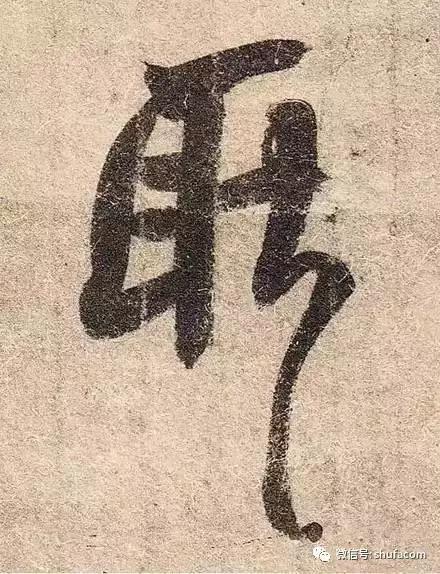 聘
微信号: shufacom